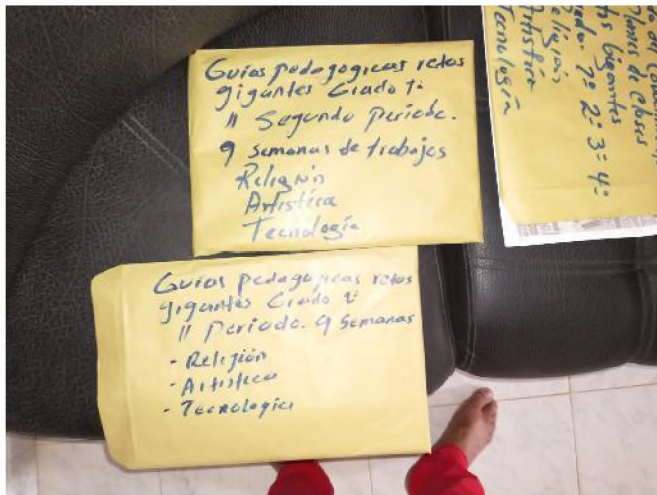 Guias pedagogicas retos
gigantes Grado
II Segundo Periodo.
9 semanas de trabajos
Religion
Artistica
Tecnologia
Guias pedagogicas retos
gigantes Grado
II Periodo. 9 Semanas
- Religión
- Artistica
- Tecnologia
Planes de clases
Gigantes
1º 2º 3º 4º
Religión
Artistica
Tecnología